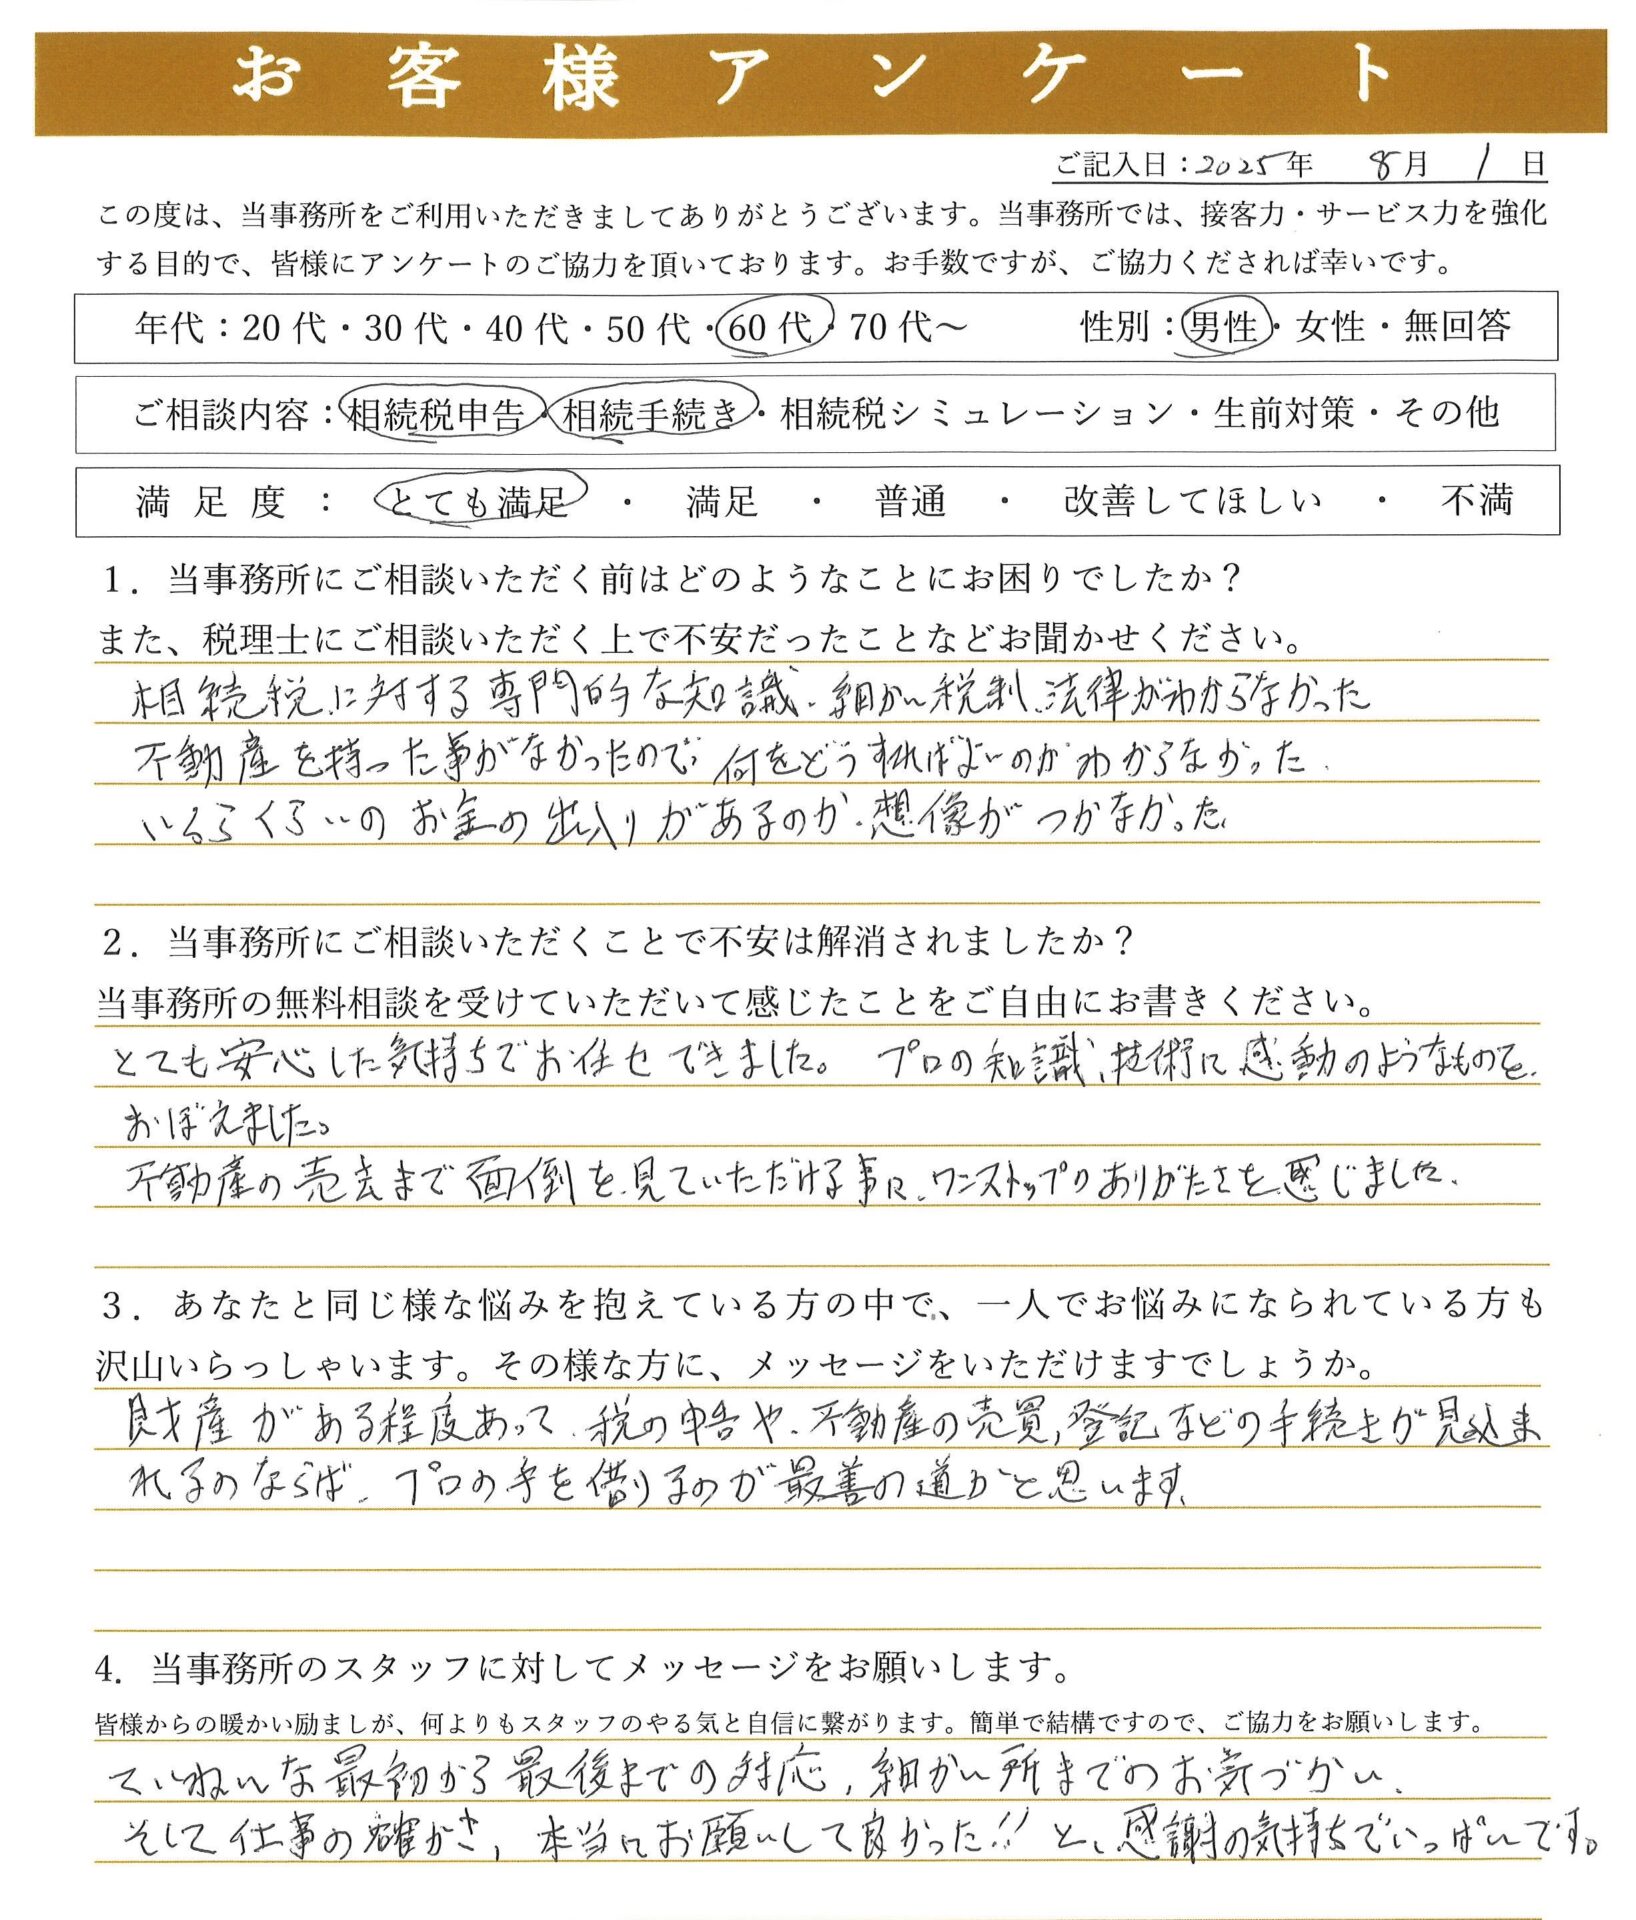 お客様アンケート
ご記入日：2025年 8月 1日
この度は、当事務所をご利用いただきましてありがとうございます。当事務所では、接客力・サービス力を強化
する目的で、皆様にアンケートのご協力を頂いております。お手数ですが、ご協力くだされば幸いです。
年代：20代・30代・40代・50代・60代・70代～ 性別：男性・女性・無回答
ご相談内容：相続税申告・相続手続き・相続税シミュレーション・生前対策・その他
満足度： とても満足 ・ 満足 ・ 普通 ・ 改善してほしい ・ 不満
１．当事務所にご相談いただく前はどのようなことにお困りでしたか？
また、税理士にご相談いただく上で不安だったことなどお聞かせください。
相続税に対する専門的な知識、細かい税制、法律がわからなかった
不動産を持った事がなかったので、何をどうすればよいのかわからなかった.
くらいのお金の出入りがあるのか想像がつかなかった.
２．当事務所にご相談いただくことで不安は解消されましたか？
当事務所の無料相談を受けていただいて感じたことをご自由にお書きください。
とても安心した気持ちでお任せできました。 プロの知識、技術に感動のようなものを
おぼえました。
不動産の売去まで面倒を見ていただける事に、ワンストップのありがたさを感じました.
３．あなたと同じ様な悩みを抱えている方の中で、一人でお悩みになられている方も
沢山いらっしゃいます。その様な方に、メッセージをいただけますでしょうか。
財産がある程度あって、税の申告や、不動産の売買,登記などの手続きが見込ま
れるのならば、プロの手を借りるのが最善の道かと思います.
4．当事務所のスタッフに対してメッセージをお願いします。
皆様からの暖かい励ましが、何よりもスタッフのやる気と自信に繋がります。簡単で結構ですので、ご協力をお願いします。
ていねいな最初から最後までの対応,細かい所までのお気づかい、
そして仕事の確かさ,本当にお願いして良かった!!と、感謝の気持ちでいっぱいです。